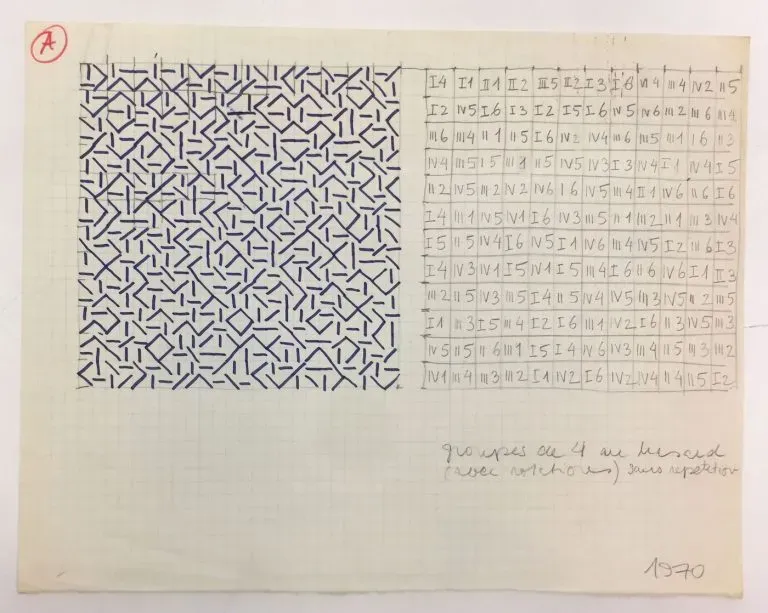 A
I4 I1 II1 II2 III5 II2 I3 I6 IV4 III4 IV2 II5
I2 IV5 I6 I3 I2 I5 I6 IV5 IV6 III2 III6 III4
III6 III4 II1 II5 I6 IV2 IV4 III6 III5 III1 I6 II3
IV4 III5 I5 III1 II5 IV5 IV3 I3 IV4 I1 IV4 I5
II2 IV5 III2 IV2 IV6 I6 IV5 III4 II1 IV6 II6 I6
I4 III1 IV5 IV1 I6 IV3 III5 II1 III2 II1 III3 IV4
I5 II5 IV4 I6 IV5 I1 IV6 III4 IV5 I2 III6 I3
I4 IV3 IV1 I5 IV1 I5 III4 I6 II6 IV6 I1 II3
III2 II5 IV3 III5 I4 II5 IV4 IV5 III3 IV5 II2 III5
I1 III3 I5 III4 I2 I6 III1 IV2 I6 II3 IV5 III3
IV5 II5 II6 III1 I5 I4 IV6 IV3 III4 II5 III3 III2
IV1 III4 III3 III2 I1 IV2 I6 IV2 IV4 II4 II5 I2
groupes de 4 au hasard
(avec rotations) sans repetition
1970